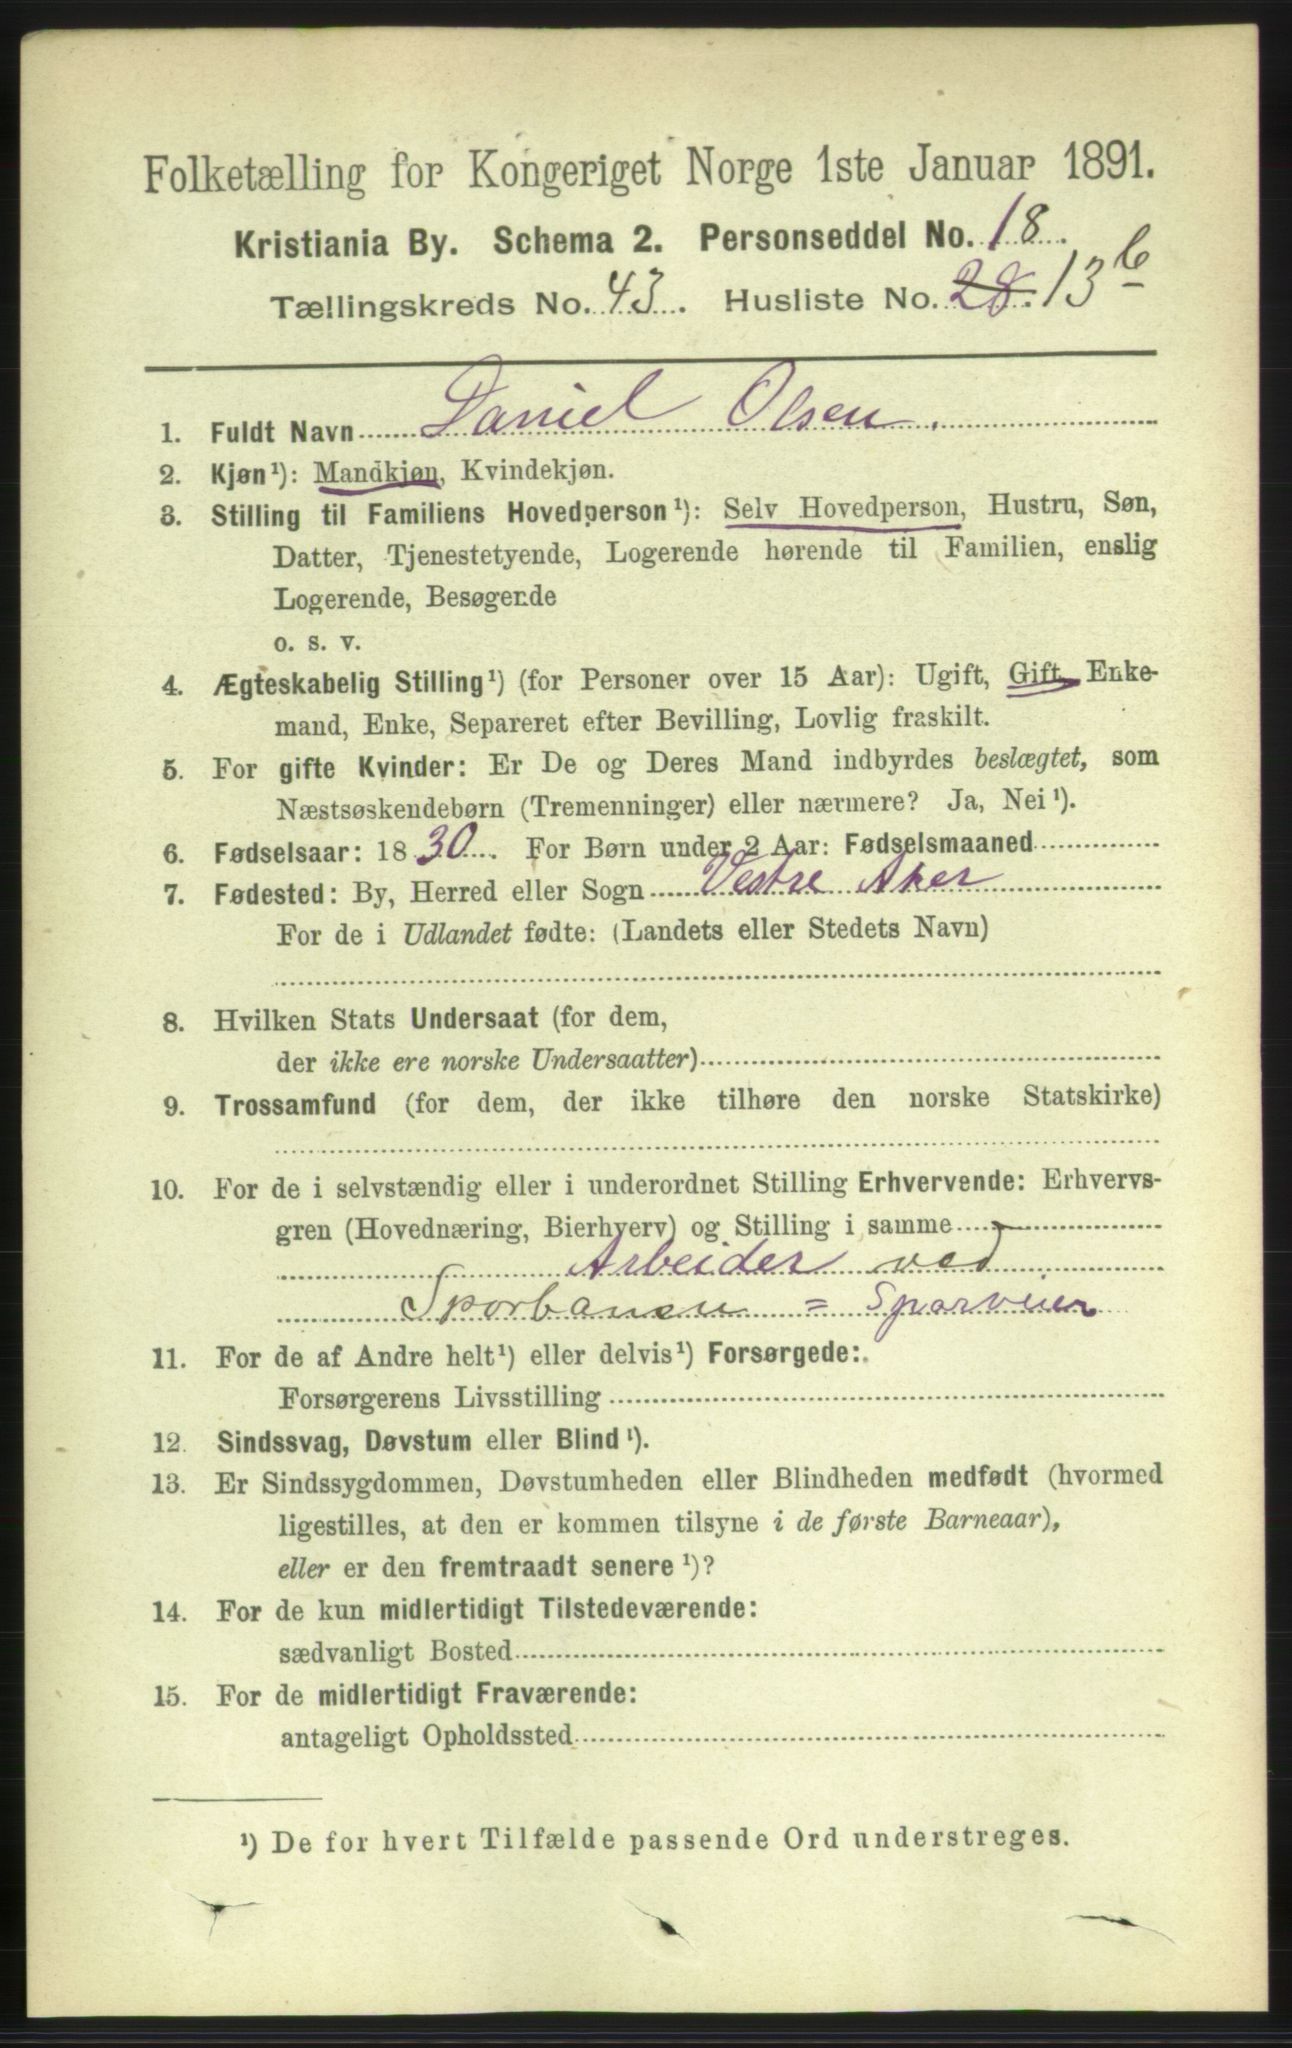 Folketælling for Kongeriget Norge 1ste Januar 1891.
Kristiania By. Schema 2. Personseddel No. 18.
Tællingskreds No. 43. Husliste No. 28. 13 b
1. Fuldt Navn Daniel Olsen.
2. Kjøn¹): Mandkjøn, Kvindekjøn.
3. Stilling til Familiens Hovedperson¹): Selv Hovedperson, Hustru, Søn,
Datter, Tjenestetyende, Logerende hørende til Familien, enslig
Logerende, Besøgende
o. s. v.
4. Ægteskabelig Stilling¹) (for Personer over 15 Aar): Ugift, Gift, Enke-
mand, Enke, Separeret efter Bevilling, Lovlig fraskilt.
5. For gifte Kvinder: Er De og Deres Mand indbyrdes beslægtet, som
Næstsøskendebørn (Tremenninger) eller nærmere? Ja, Nei¹).
6. Fødselsaar: 1830. For Børn under 2 Aar: Fødselsmaaned
7. Fødested: By, Herred eller Sogn Vestre Aker
For de i Udlandet fødte: (Landets eller Stedets Navn)
8. Hvilken Stats Undersaat (for dem,
der ikke ere norske Undersaatter)
9. Trossamfund (for dem, der ikke tilhøre den norske Statskirke)
10. For de i selvstændig eller i underordnet Stilling Erhvervende: Erhvervs-
gren (Hovednæring, Bierhverv) og Stilling i samme
Arbeider ved
Sporbanen = Sporveien
11. For de af Andre helt¹) eller delvis¹) Forsørgede:
Forsørgerens Livsstilling
12. Sindssvag, Døvstum eller Blind¹).
13. Er Sindssygdommen, Døvstumheden eller Blindheden medfødt (hvormed
ligestilles, at den er kommen tilsyne i de første Barneaar),
eller er den fremtraadt senere¹)?
14. For de kun midlertidigt Tilstedeværende:
sædvanligt Bosted
15. For de midlertidigt Fraværende:
antageligt Opholdssted
¹) De for hvert Tilfælde passende Ord understreges.